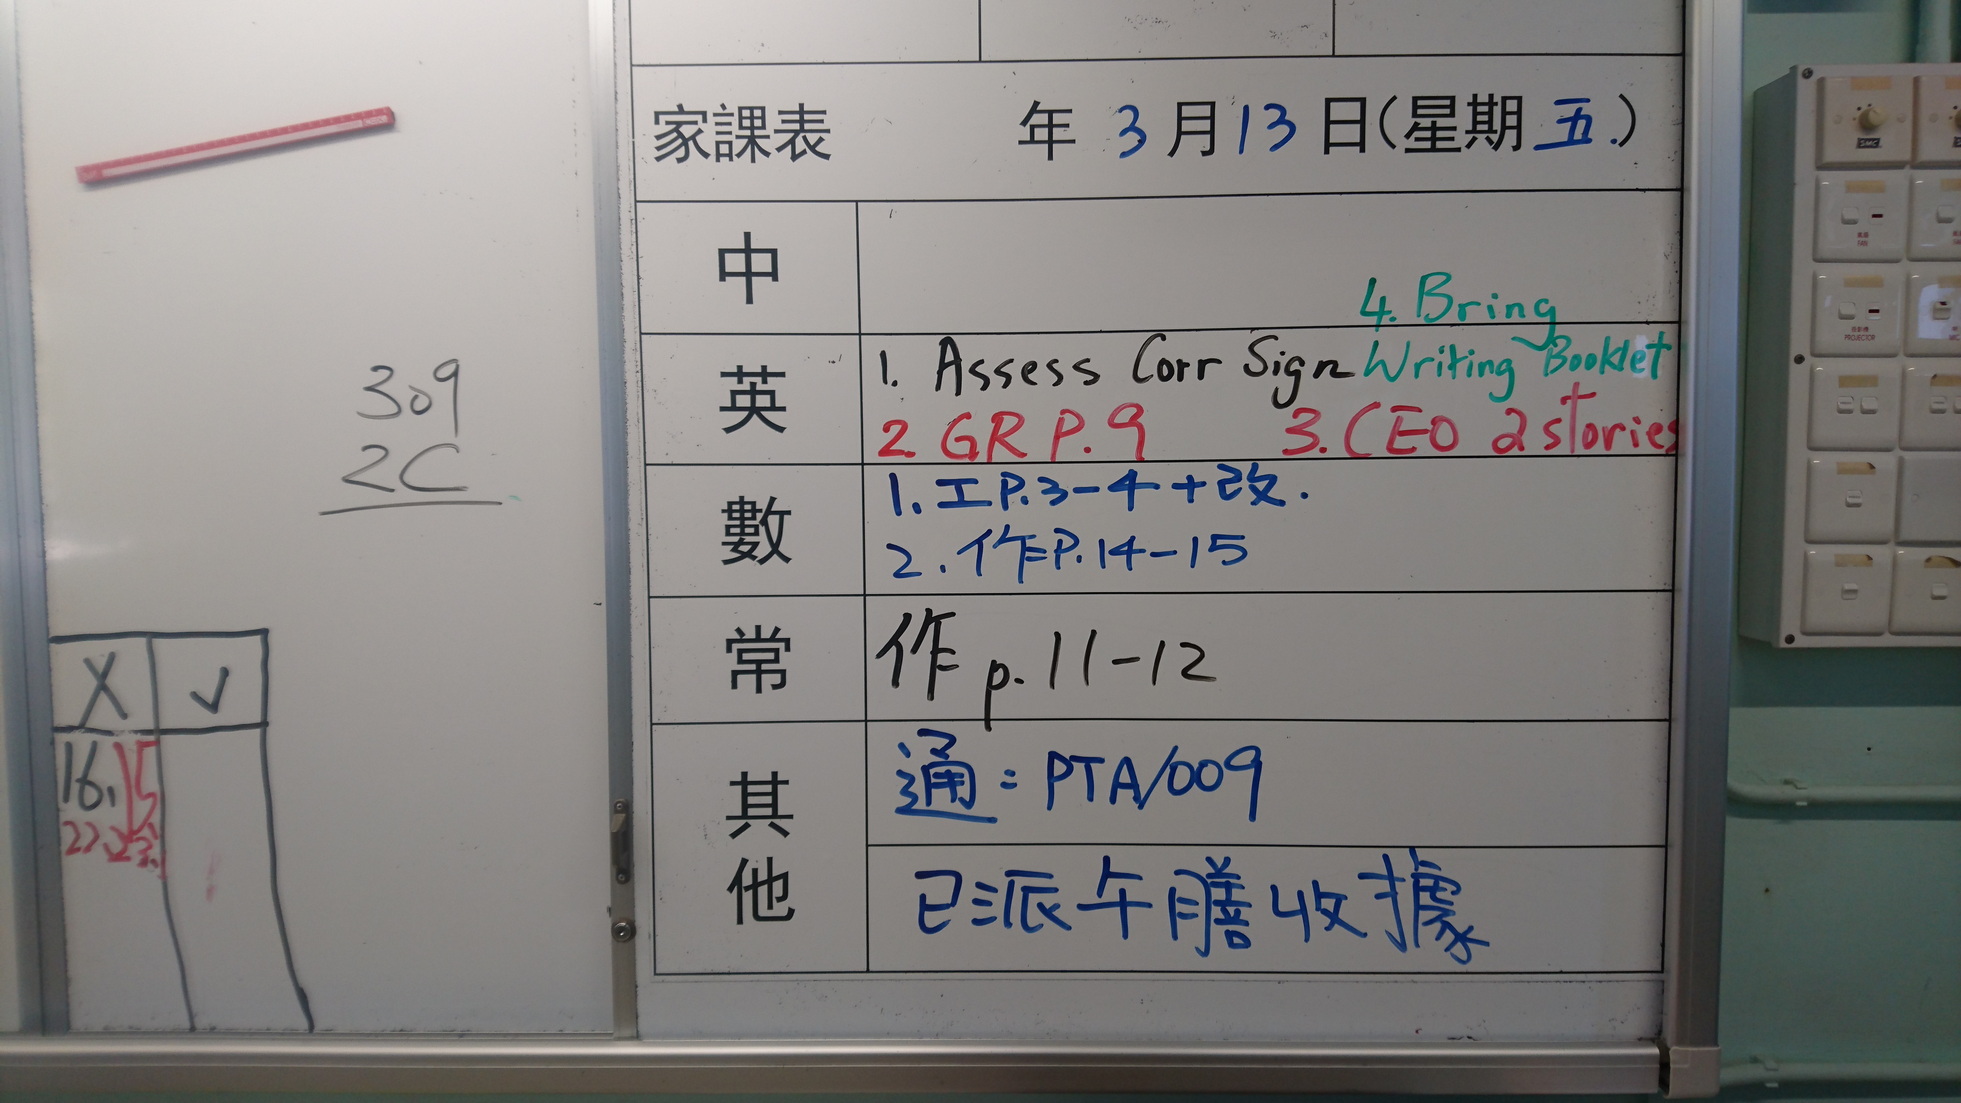 家課表 年 3 月 13 日(星期 五.)
中
英
4. Bring
1. Assess Corr Sign Writing Booklet
2. GR P.9 3. CEO 2 stories
數
1. 工P.3-4+改.
2. 作P.14-15
常
作 p.11-12
其他
通: PTA/009
已派午膳收據
309
2C
X ✓
16, 15
22, 23,
FAN
PROJECTOR